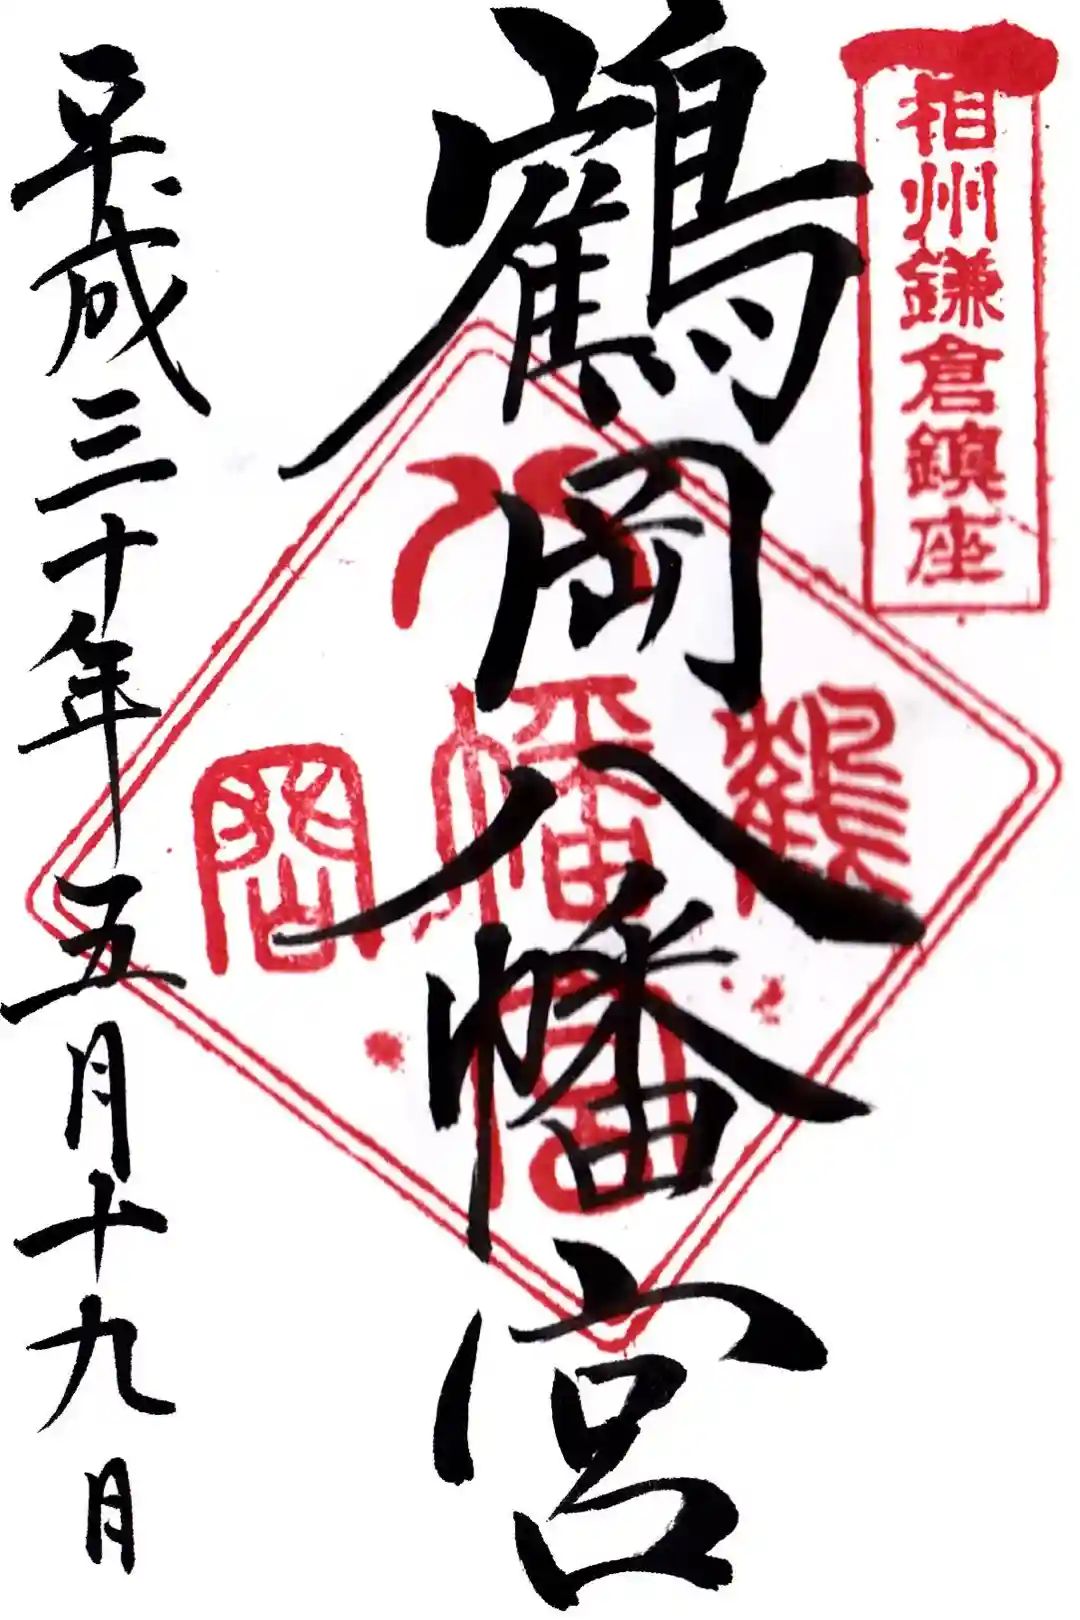 相州鎌倉鎮座
鶴岡八幡宮
鶴岡八幡宮
平成三十年五月十九日